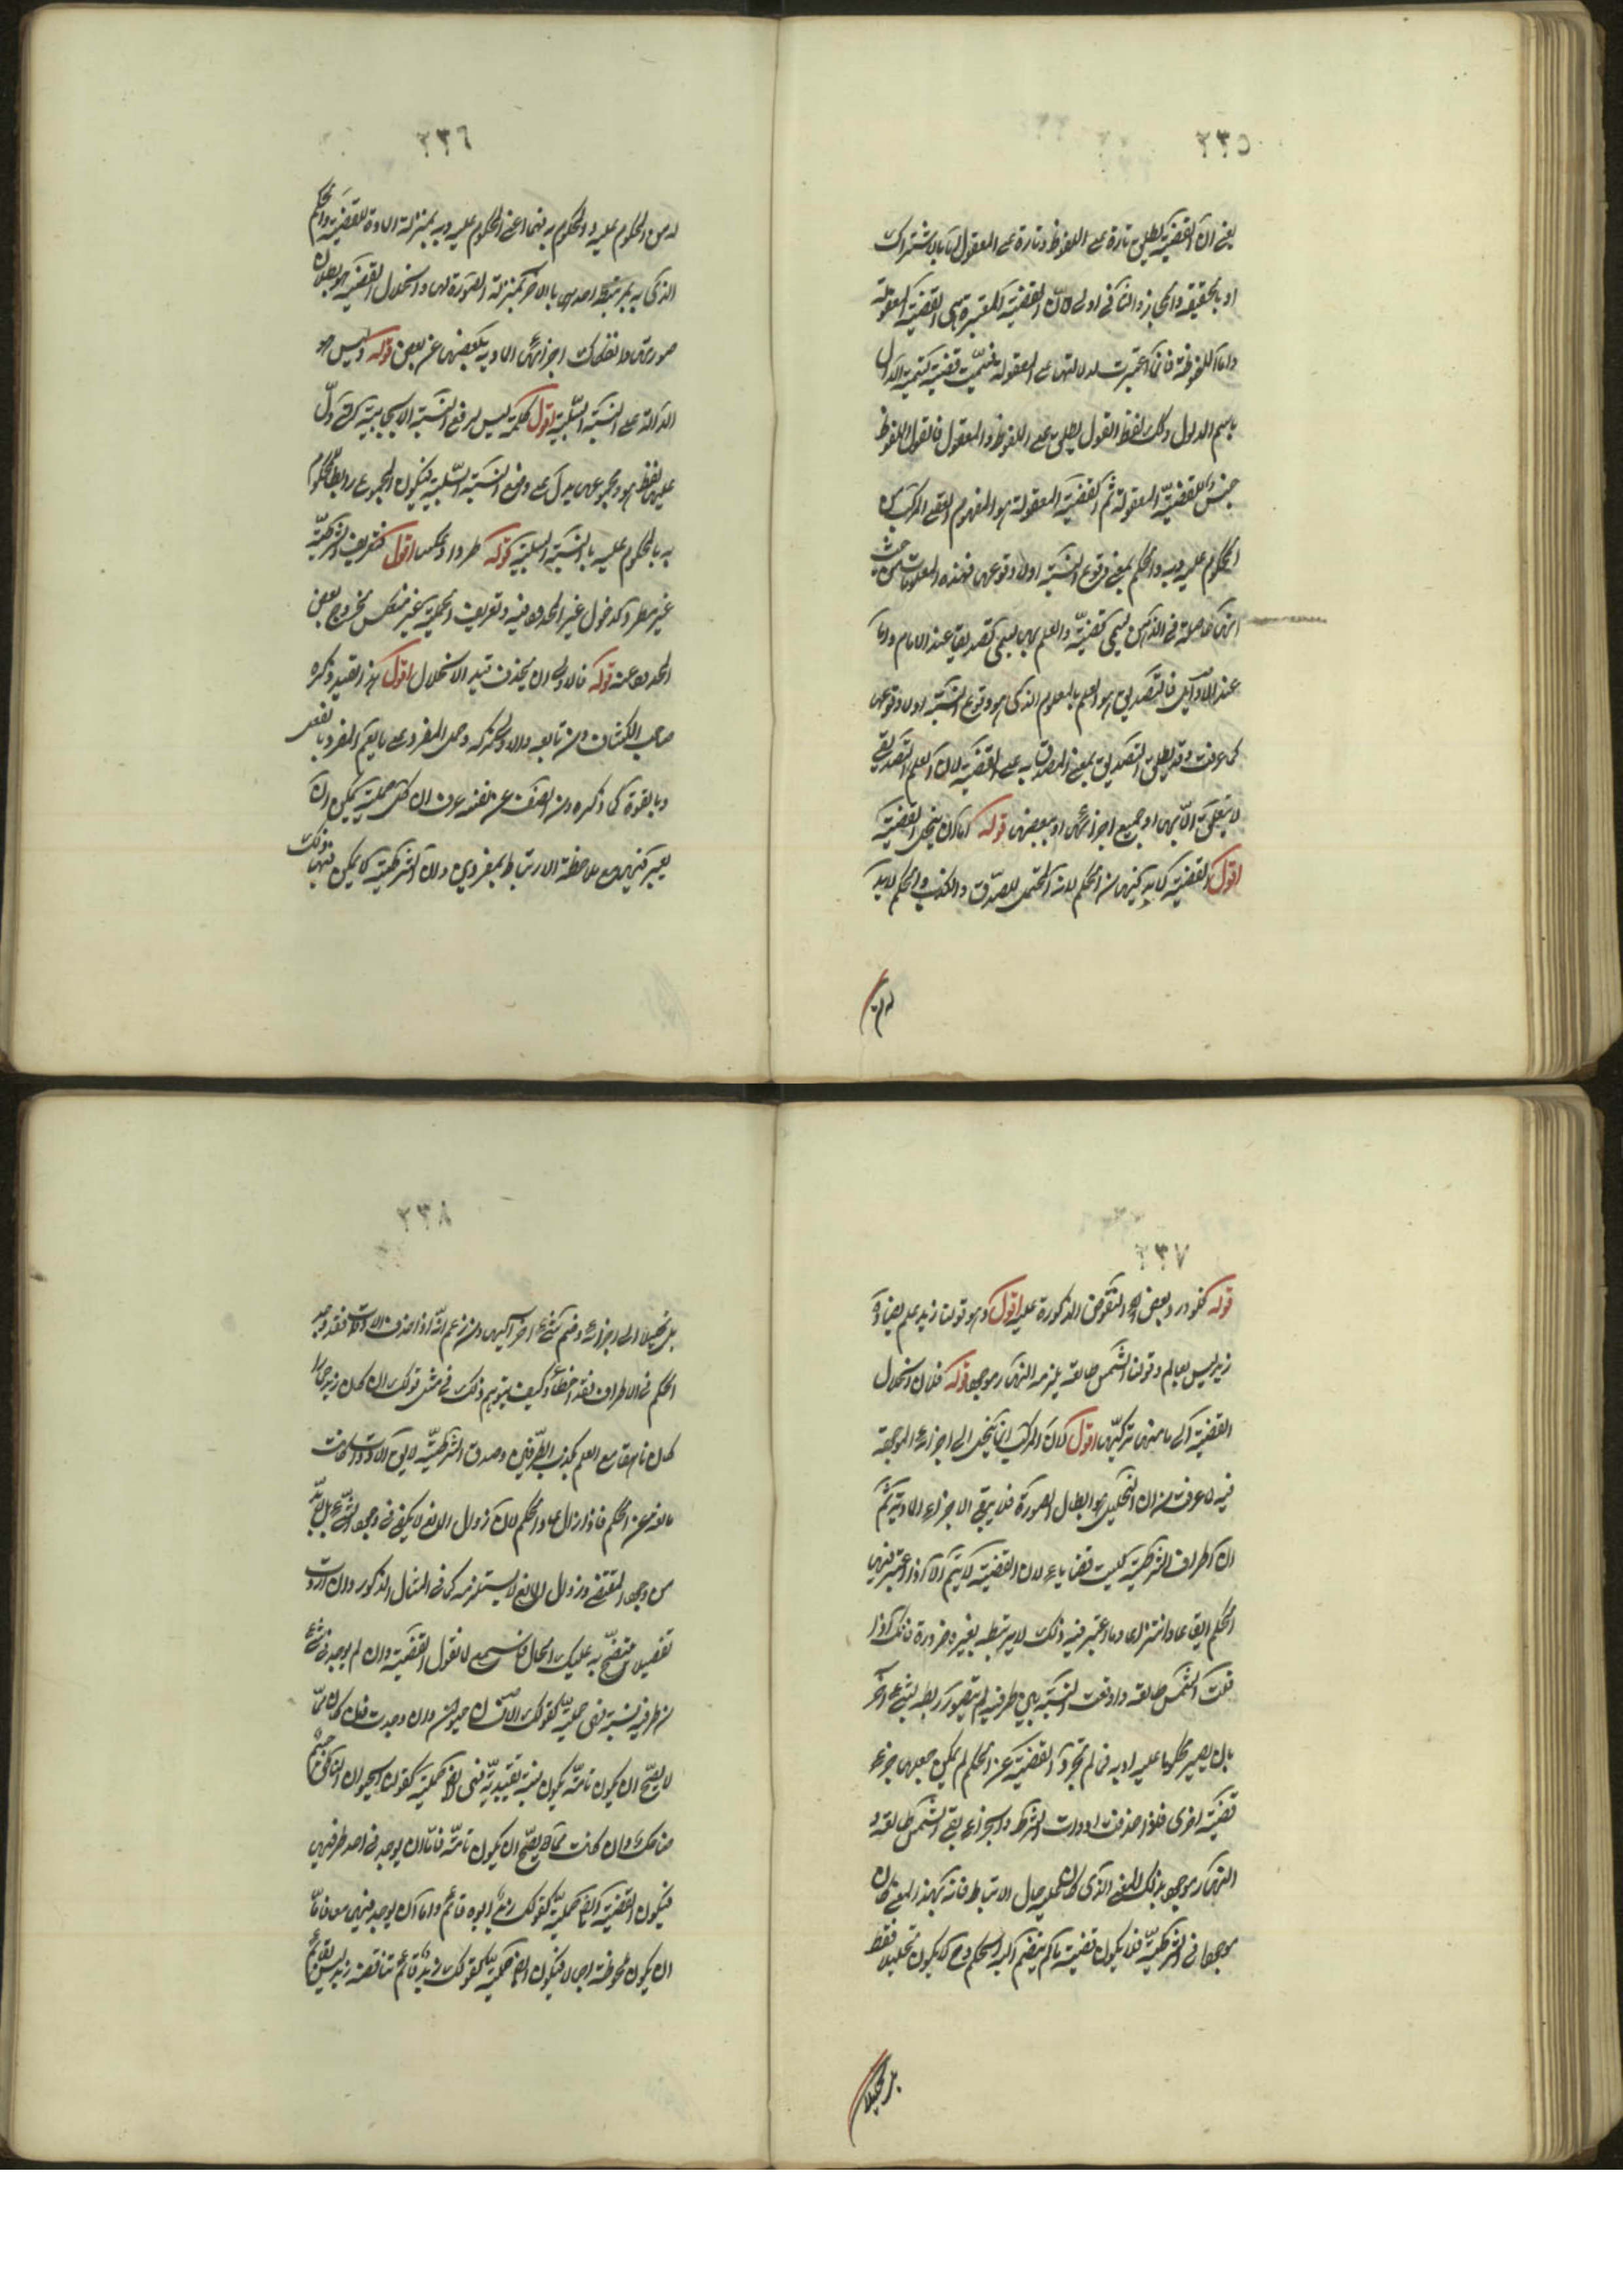 ٢٣٥
يعني ان القضية يطلق تارة على الملفوظ وتارة على المعقول اما بالاشتراك
او بالحقيقة والمجاز والثاني اولى لان القضية المعتبرة هي القضية المعقولة
واما الملفوظة فانما اعتبرت لدلالتها على المعقولة فسميت قضية تسمية الدال
باسم المدلول وكذلك لفظ القول يطلق على الملفوظ والمعقول فالقول الملفوظ
جنس للقضية المعقولة ثم القضية المعقولة هو المفهوم العقلي المركب من
المحكوم عليه وبه والحكم بمعنى وقوع النسبة اولا وقوعها فهذه المعلومات من حيث
انها حاصلة في الذهن يسمى قضية والعلم بها يسمى تصديقا عند الامام واما
عند الاوائل فالتصديق هو العلم بالمعلوم الذي هو وقوع النسبة اولا وقوعها
كما عرفت وقد يطلق التصديق بمعنى المصدق به على القضية لان العلم التصديقي
لا يتعلق الا بها او بجميع اجزائها او ببعضها قوله اما ان ينحل القضية
اقول القضية لا بد فيها من الحكم لانه المحتمل للصدق والكذب والحكم لا بد
له من
٢٣٦
له من المحكوم عليه والمحكوم به فهما اعني المحكوم عليه وبه بمنزلة المادة للقضية والحكم
الذي به يرتبط احدهما بالاخر بمنزلة الصورة لها وانحلال القضية هو بطلان
صورتها وانفكاك اجزائها المادية بعضها عن بعض قوله وليس هو
الدالة على النسبة السلبية اقول كلمة ليس لرفع النسبة الايجابية التي دل
عليها لفظ هو ومجموعهما يدل على رفع النسبة السلبية فيكون المجموع رابطا للمحكوم
به بالمحكوم عليه بالنسبة السلبية قوله طردا وعكسا اقول فتعريف الشرطية
غير مطرد لدخول غير المحدود فيه وتعريف الحملية غير منعكس لخروج بعض
المحدود عنه قوله فالاولى ان يحذف قيد الانحلال اقول هذا القيد ذكره
صاحب الكشف ومن تابعه والاولى تركه وحمل المفرد على ما يعم المفرد بالفعل
وبالقوة كما ذكره ومن انصف من نفسه عرف ان كل حملية يمكن ان
يعبر فيها مع ملاحظة الارتباط بمفردين وان الشرطية لا يمكن فيها ذلك
٢٣٧
قوله فنورد بعض النقوض المذكورة عليه اقول وهو قولنا زيد عالم يضاده
زيد ليس بعالم وقولنا الشمس طالعة يلزمه النهار موجود قوله فلان انحلال
القضية الى ما منه تركبها اقول لان المركب انما ينحل الى اجزائه الموجودة
فيه لما عرفت من ان التحليل هو ابطال الصورة فلا يبقى الا الاجزاء المادية ثم
ان اطراف الشرطية ليست قضايا لان القضية لا يتم الا اذا اعتبر فيها
الحكم ايقاعا وانتزاعا وما اعتبر فيه ذلك لا يرتبط بغيره ضرورة فانك اذا
قلت الشمس طالعة واوقعت النسبة بين طرفيه لم يتصور ربطه بشيء اخر
بان يصير محكوما عليه او به فما لم تجرد القضية عن الحكم لم يمكن جعلها جزء
قضية اخرى فاذا حذفت ادوات الشرط والجزاء بقي الشمس طالعة و
النهار موجود بذلك المعنى الذي كان عليه حال الارتباط فانه بهذا المعنى كان
موجودا في الشرطية فلا يكون قضية ما لم ينضم اليه الحكم وح لا يكون تحليلا فقط
بل تحليلا
٢٣٨
بل تحليلا الى اجزائه وضم شيء اخر اليها ومن زعم انه اذا حذف الادوات فقد وجد
الحكم في الاطراف فقد اخطأ وكيف يتوهم ذلك في مثل قولك ان كان زيد حمارا
كان ناهقا مع العلم بكذب الطرفين وصدق الشرطية لا يق الادوات كانت
مانعة عن الحكم فاذا زال عاد الحكم لان زوال المانع لا يكفي في وجود الشيء بل لا بد
من وجود المقتضي وزوال المانع لا يستلزمه كما في المثال المذكور وان اردت
تفصيلا يتضح به عليك الحال فاستمع لما نقول القضية وان لم يوجد في شيء
من طرفيه نسبة فهي حملية كقولك الانسان حيوان وان وجدت فان كانت مما
لا يصح ان يكون تامة يكون نسبة تقييدية فهي ايضا حملية كقولك الحيوان الناطق جسم
ضاحك وان كانت مما يصح ان يكون تامة فاما ان يوجد في احد طرفيها
فيكون القضية ايضا حملية كقولك زيد ابوه قائم واما ان يوجد فيهما معا فاما
ان يكون ملحوظة اجمالا فيكون ايضا حملية كقولك زيد قائم تناقضه زيد ليس بقائم